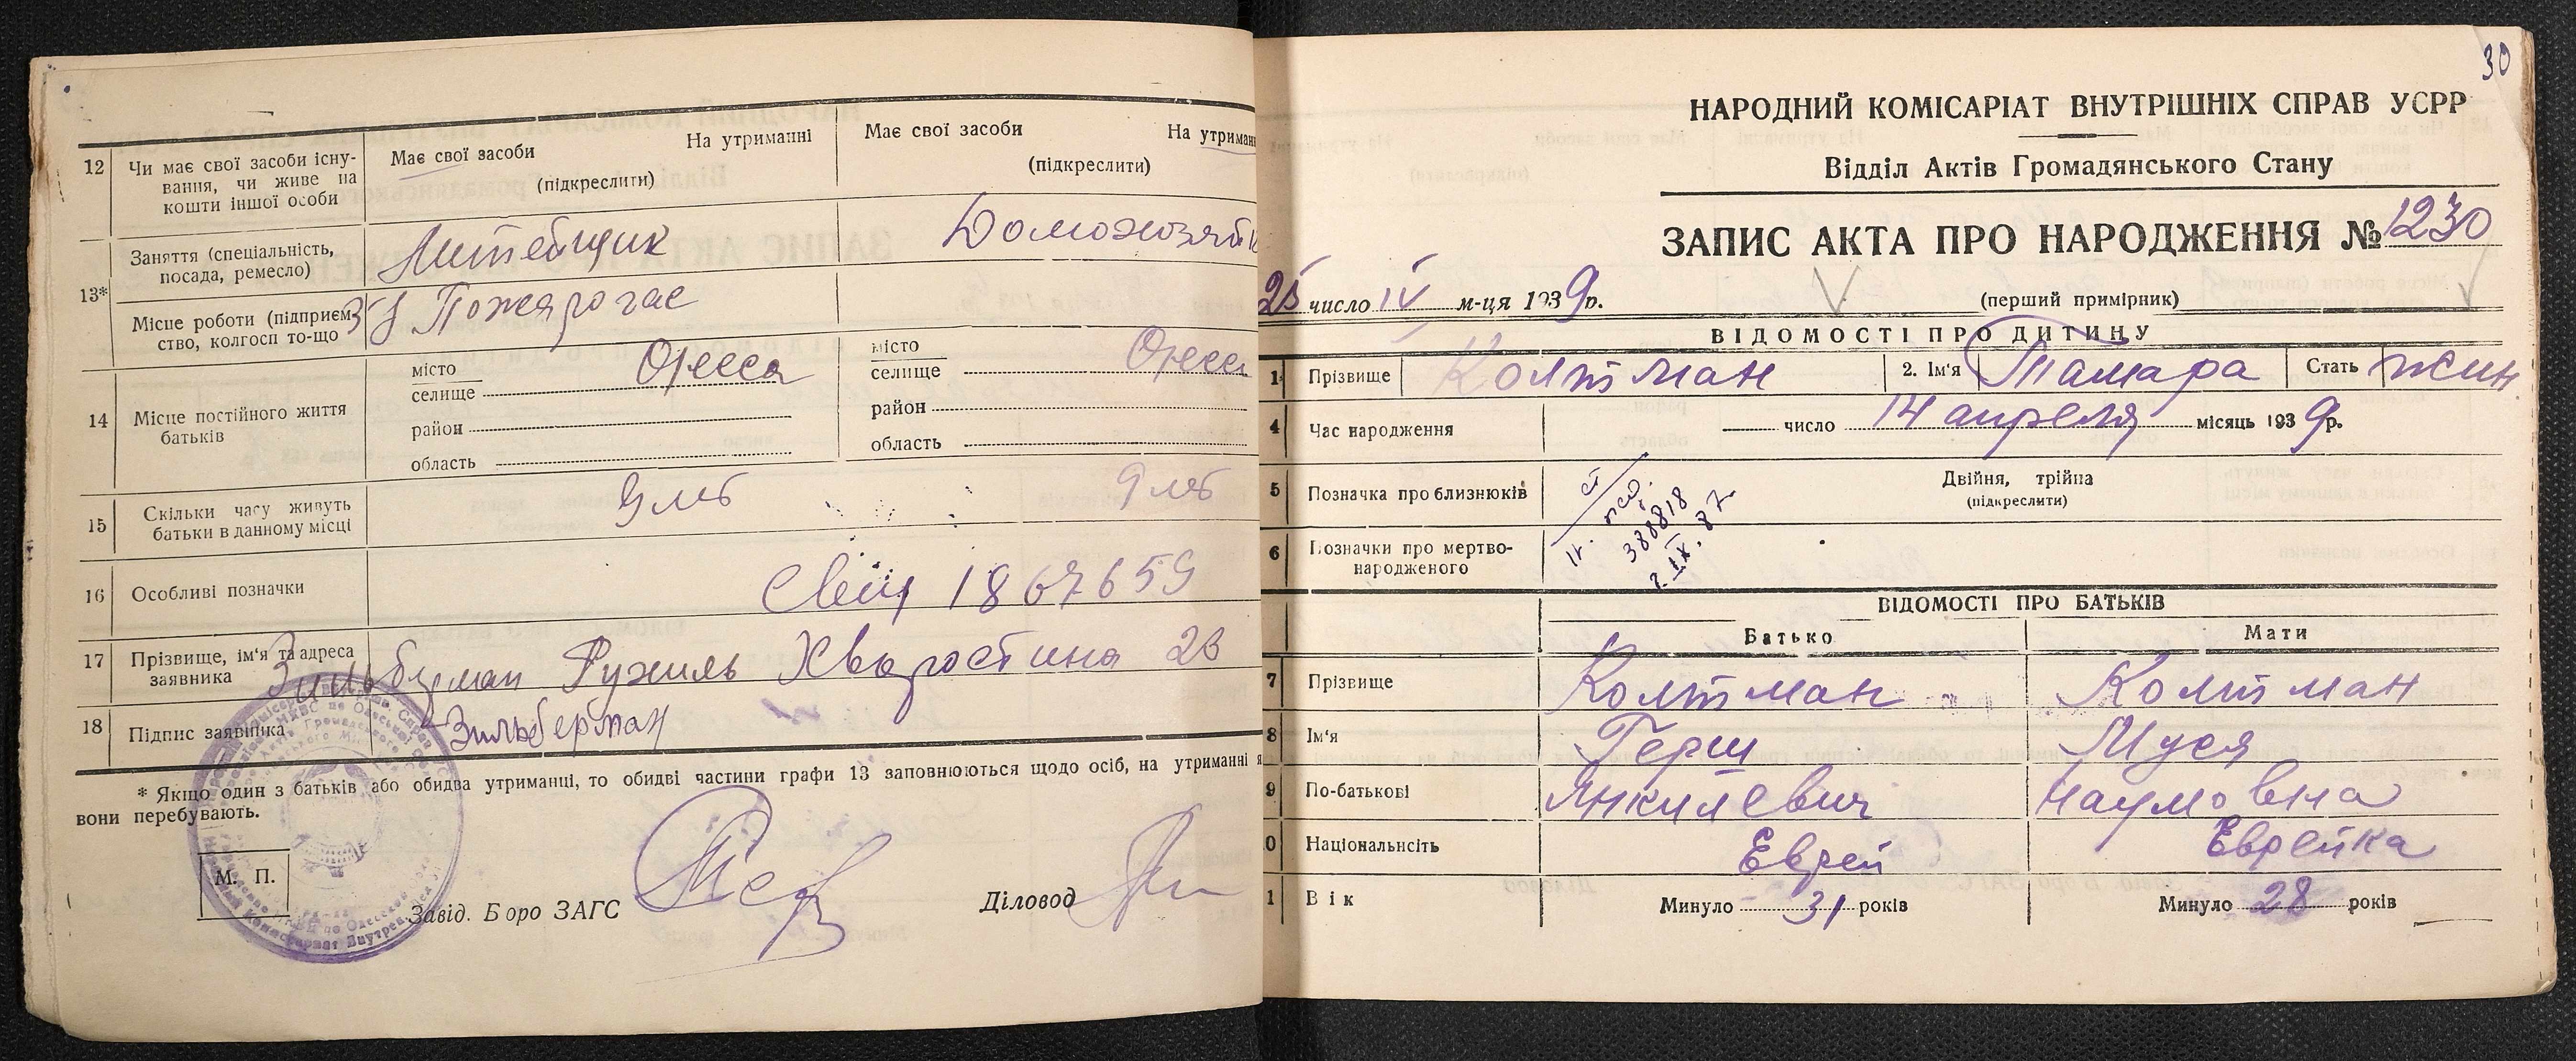 12
Чи має свої засоби існу-
вання, чи живе на
кошти іншої особи
Має свої засоби
На утриманні
(підкреслити)
Має свої засоби
На утриман
(підкреслити)
13*
Заняття (спеціальність,
посада, ремесло)
Литейщик
Домохозяйк
Місце роботи (підприєм-
ство, колгосп то-що
Пожарогас
14
Місце постійного життя
батьків
місто
селище
Одесса
район
область
місто
селище
Одесс
район
область
15
Скільки часу живуть
батьки в данному місці
9 лет
9 лет
16
Особливі позначки
Свид 1867659
17
Прізвище, ім'я та адреса
заявника
Зильберман Рухиль Хворостина 28
18
Підпис заявника
Зильберман
* Якщо один з батьків або обидва утриманці, то обидві частини графи 13 заповнюються щодо осіб, на утриманні я
вони перебувають.
М. П.
Завід. Бюро ЗАГС
Діловод
30
НАРОДНИЙ КОМІСАРІАТ ВНУТРІШНІХ СПРАВ УСРР
Відділ Актів Громадянського Стану
ЗАПИС АКТА ПРО НАРОДЖЕННЯ № 1230
25 число IV м-ця 1939 р.
(перший примірник)
ВІДОМОСТІ ПРО ДИТИНУ
1
Прізвище
Колтман
2. Ім'я
Тамара
Стать
жин
4
Час народження
число 14 апреля місяць 1939 р.
5
Позначка про близнюків
Двійня, трійна
(підкреслити)
388818
IX. 87
6
Позначки про мертво-
народженого
ВІДОМОСТІ ПРО БАТЬКІВ
Батько
Мати
7
Прізвище
Колтман
Колтман
8
Ім'я
Герш
Муся
9
По-батькові
Янкилевич
Наумовна
0
Національнсіть
Еврей
Еврейка
1
Вік
Минуло 31 років
Минуло 28 років